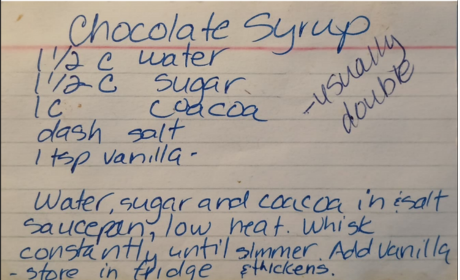 Chocolate Syrup
1 1/2 c water
1 1/2 c sugar
1 c coacoa
dash salt
1 tsp vanilla -
- usually
double
Water, sugar and coacoa in & salt
saucepan, low heat. Whisk
constantly until simmer. Add vanilla
- store in fridge & thickens.